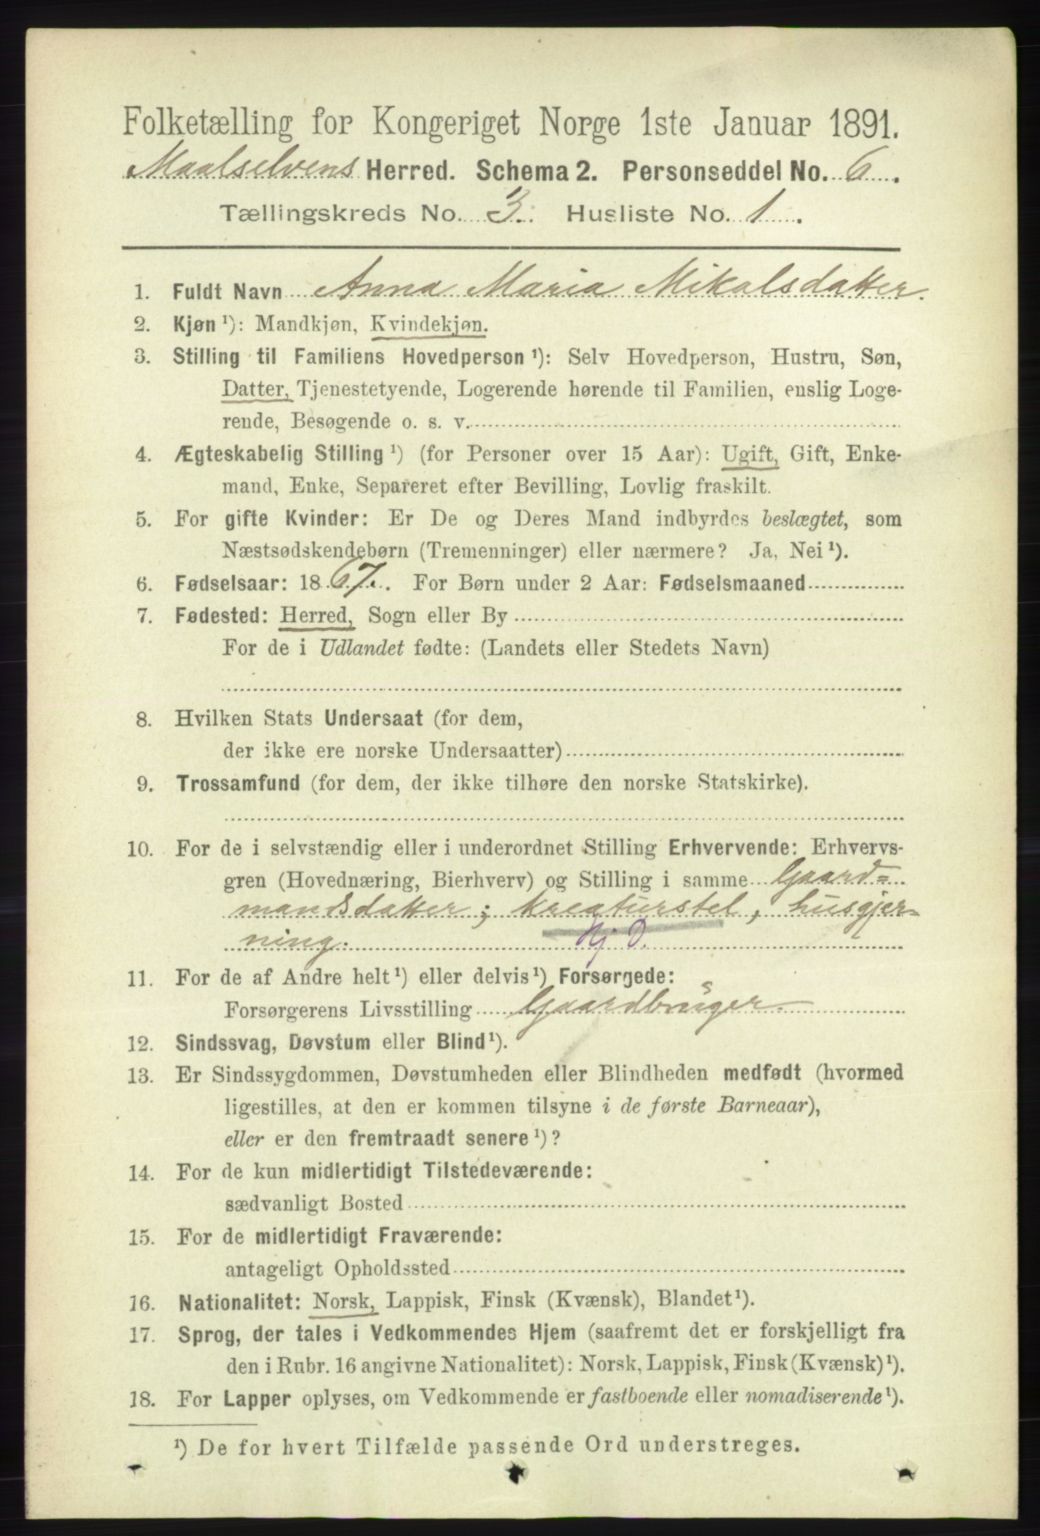 Folketælling for Kongeriget Norge 1ste Januar 1891.
Maalselvens Herred. Schema 2. Personseddel No. 6.
Tællingskreds No. 3. Husliste No. 1.
1. Fuldt Navn Anna Maria Mikalsdatter.
2. Kjøn ¹): Mandkjøn, Kvindekjøn.
3. Stilling til Familiens Hovedperson ¹): Selv Hovedperson, Hustru, Søn,
Datter, Tjenestetyende, Logerende hørende til Familien, enslig Loge-
rende, Besøgende o. s. v.
4. Ægteskabelig Stilling ¹) (for Personer over 15 Aar): Ugift, Gift, Enke-
mand, Enke, Separeret efter Bevilling, Lovlig fraskilt.
5. For gifte Kvinder: Er De og Deres Mand indbyrdes beslægtet, som
Næstsødskendebørn (Tremenninger) eller nærmere? Ja, Nei ¹).
6. Fødselsaar: 1867. For Børn under 2 Aar: Fødselsmaaned
7. Fødested: Herred, Sogn eller By
For de i Udlandet fødte: (Landets eller Stedets Navn)
8. Hvilken Stats Undersaat (for dem,
der ikke ere norske Undersaatter)
9. Trossamfund (for dem, der ikke tilhøre den norske Statskirke).
10. For de i selvstændig eller i underordnet Stilling Erhvervende: Erhvervs-
gren (Hovednæring, Bierhverv) og Stilling i samme Gaard=
mandsdatter; kreaturstel, husgjer-
ning. Hj D.
11. For de af Andre helt ¹) eller delvis ¹) Forsørgede:
Forsørgerens Livsstilling Gaardbruger
12. Sindssvag, Døvstum eller Blind ¹).
13. Er Sindssygdommen, Døvstumheden eller Blindheden medfødt (hvormed
ligestilles, at den er kommen tilsyne i de første Barneaar),
eller er den fremtraadt senere ¹)?
14. For de kun midlertidigt Tilstedeværende:
sædvanligt Bosted
15. For de midlertidigt Fraværende:
antageligt Opholdssted
16. Nationalitet: Norsk, Lappisk, Finsk (Kvænsk), Blandet ¹).
17. Sprog, der tales i Vedkommendes Hjem (saafremt det er forskjelligt fra
den i Rubr. 16 angivne Nationalitet): Norsk, Lappisk, Finsk (Kvænsk) ¹).
18. For Lapper oplyses, om Vedkommende er fastboende eller nomadiserende ¹).
¹) De for hvert Tilfælde passende Ord understreges.